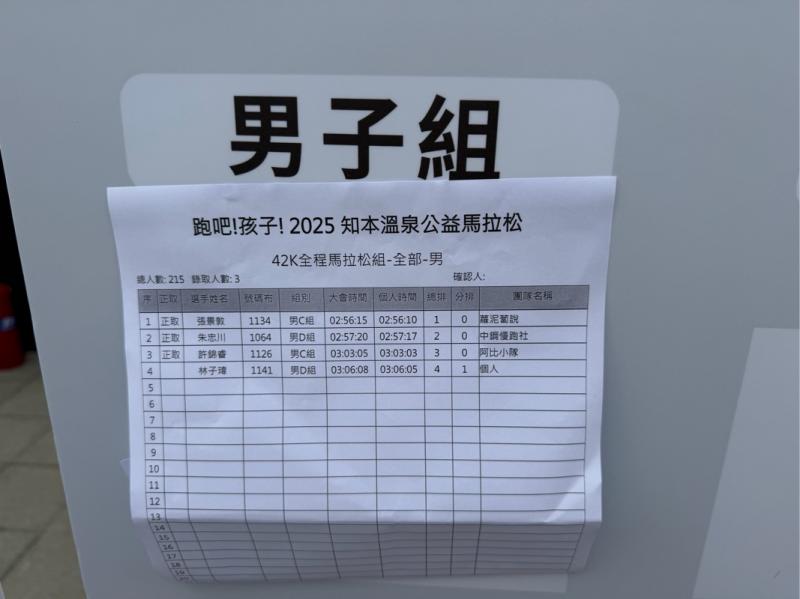 男子組
跑吧!孩子! 2025 知本溫泉公益馬拉松
42K全程馬拉松組-全部-男
總人數: 215 錄取人數: 3 確認人:
序 正取 選手姓名 號碼布 組別 大會時間 個人時間 總排 分排 團隊名稱
1 正取 張景敦 1134 男C組 02:56:15 02:56:10 1 0 蘿泥蔔說
2 正取 朱忠川 1064 男D組 02:57:20 02:57:17 2 0 中鋼慢跑社
3 正取 許錦睿 1126 男C組 03:03:05 03:03:03 3 0 阿比小隊
4 林子瑋 1141 男D組 03:06:08 03:06:05 4 1 個人
5
6
7
8
9
10
11
12
13
14
15
16
17
18